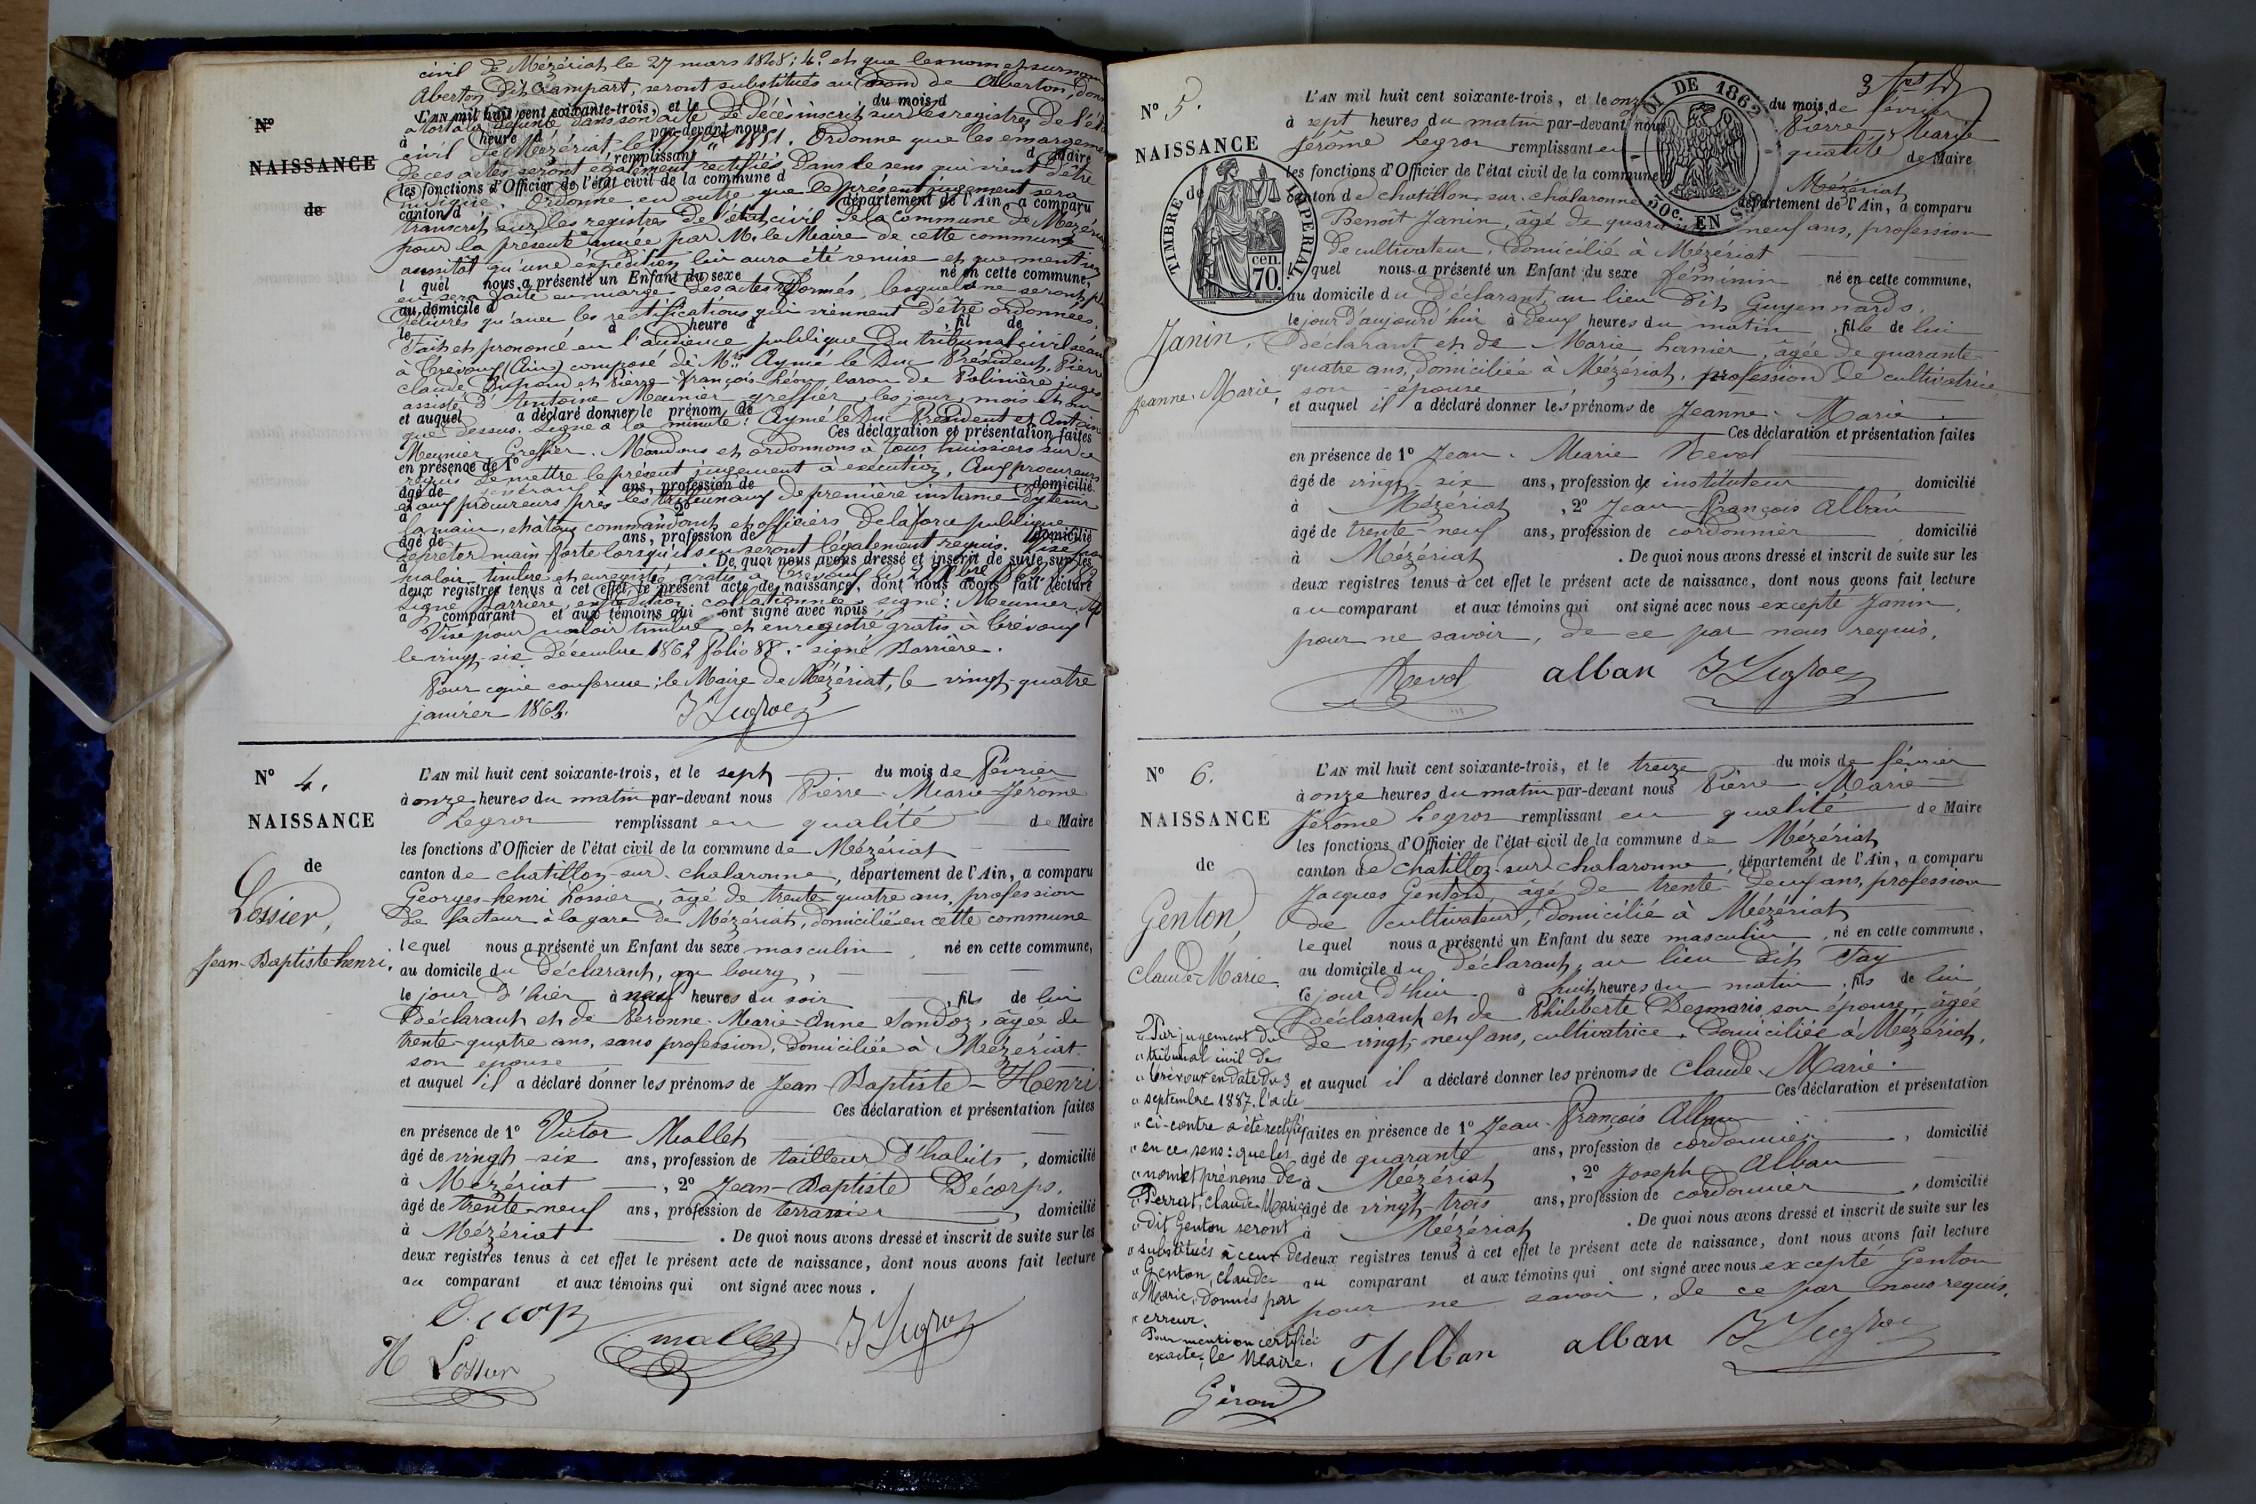 civil de Mézériat le 27 mars 1828; 4.º et que les nom et surnom
Aberton dit Crampart, seront substitués au nom de Alberton, donné
Nº
L'AN mil huit cent soixante-trois, et le du mois d
a tort à la défunte dans son acte de décès inscrit sur les registres de l'état
à heure d par-devant nous
civil de Mézériat le 1851. Ordonne que les émargements
NAISSANCE
remplissant d Maire
de ces actes seront également rectifiés dans le sens qui vient d'être
les fonctions d'Officier de l'état civil de la commune d
indiqué. Ordonne en outre que le présent jugement sera
de
canton d département de l'Ain, a comparu
transcrit sur les registres de l'état civil de la commune de Mézériat
pour la présente année par M. le Maire de cette commune
aussitôt qu'une expédition lui aura été remise et que mention
l quel nous a présenté un Enfant du sexe né en cette commune,
en sera faite en marge des actes réformés, lesquels ne seront plus
au domicile d
délivrés qu'avec les rectifications qui viennent d'être ordonnées.
le à heure d , fil de
Fait et prononcé en l'audience publique du tribunal civil séant
à Trévoux (Ain) composé de M.rs Aymé le Duc Président, Pierre
claude Dupond et Pierre-françois Léon, baron de Polinière juges
assisté d'Antoine Meunier greffier, les jour, mois et an
et auquel a déclaré donner le prénom de
que dessus. Signé à la minute: Aymé le Duc Président et Antoine
Ces déclaration et présentation faites
Meunier Greffier. Mandons et ordonnons à tous huissiers sur ce
en présence de 1º
requis de mettre le présent jugement à exécution, Aux procureurs
âgé de ans, profession de domicilié
généraux et aux procureurs près les tribunaux de première instance d'y tenir
à , 2º
la main, et à tous commandants et officiers de la force publique
âgé de ans, profession de domicilié
de prêter main forte lorsqu'ils en seront légalement requis. Visé pour
à . De quoi nous avons dressé et inscrit de suite sur les
valoir timbre et enregistré gratis à Trévoux
deux registres tenus à cet effet le présent acte de naissance, dont nous avons fait lecture
signé Barrière, expédition collationnée signé: Meunier
a comparant et aux témoins qui ont signé avec nous
Visé pour valoir timbre et enregistré gratis à Trévoux
le vingt-six Décembre 1862 folio 88. signé Barrière.
Pour copie conforme: le Maire de Mézériat, le vingt-quatre
janvier 1863. J Legros
Nº 4.
NAISSANCE
de
Lossier,
Jean-Baptiste-henri.
L'AN mil huit cent soixante-trois, et le sept du mois de Février
à onze heures du matin par-devant nous Pierre-Marie-Jérôme
Legros remplissant en qualité de Maire
les fonctions d'Officier de l'état civil de la commune de Mézériat
canton de chatillon-sur-chalaronne, département de l'Ain, a comparu
Georges-henri Lossier, âgé de trente-quatre ans, profession
de facteur à la gare de Mézériat, domicilié en cette commune
lequel nous a présenté un Enfant du sexe masculin , né en cette commune,
au domicile du Déclarant, au bourg,
le jour d'hier à neuf heures du soir , fils de lui
Déclarant et de Péronne-Marie-Anne Sandoz, âgée de
trente-quatre ans, sans profession, domiciliée à Mézériat
son épouse
et auquel il a déclaré donner les prénoms de Jean-Baptiste-Henri
Ces déclaration et présentation faites
en présence de 1º Victor Mallet
âgé de vingt-six ans, profession de tailleur d'habits, domicilié
à Mézériat , 2º Jean-Baptiste Décorps,
âgé de trente-neuf ans, profession de terrassier , domicilié
à Mézériat . De quoi nous avons dressé et inscrit de suite sur les
deux registres tenus à cet effet le présent acte de naissance, dont nous avons fait lecture
au comparant et aux témoins qui ont signé avec nous.
Décorp mallet J Legros
H Lossier
Nº 5.
NAISSANCE
de
TIMBRE IMPERIAL
cen. 70.
Janin,
Jeanne-Marie,
II DE 1862
50c. EN SUS
L'AN mil huit cent soixante-trois, et le onze du mois de février
à sept heures du matin par-devant nous Pierre Marie
Jérôme Legros remplissant en qualité de Maire
les fonctions d'Officier de l'état civil de la commune de Mézériat
canton de chatillon-sur-chalaronne département de l'Ain, a comparu
Benoît Janin, âgé de quarante neuf ans, profession
de cultivateur, domicilié à Mézériat
lequel nous a présenté un Enfant du sexe féminin né en cette commune,
au domicile du Déclarant, au lieu dit Guyennards,
le jour d'aujourd'hui à deux heures du matin , fille de lui
déclarant et de Marie Lanier, âgée de quarante-
quatre ans, domiciliée à Mézériat, profession de cultivatrice
son épouse
et auquel il a déclaré donner les prénoms de Jeanne-Marie.
Ces déclaration et présentation faites
en présence de 1º Jean-Marie Nevol
âgé de vingt-six ans, profession de instituteur domicilié
à Mézériat , 2º Jean-François Alban
âgé de trente-neuf ans, profession de cordonnier domicilié
à Mézériat . De quoi nous avons dressé et inscrit de suite sur les
deux registres tenus à cet effet le présent acte de naissance, dont nous avons fait lecture
au comparant et aux témoins qui ont signé avec nous excepté Janin,
pour ne savoir, de ce par nous requis.
Nevol alban J Legros
Nº 6.
NAISSANCE
de
Genton,
Claude-Marie.
L'AN mil huit cent soixante-trois, et le treize du mois de février
à onze heures du matin par-devant nous Pierre-Marie-
Jérôme Legros remplissant en qualité de Maire
les fonctions d'Officier de l'état civil de la commune de Mézériat
canton de chatillon-sur-chalaronne, département de l'Ain, a comparu
Jacques Genton âgé de trente-deux ans, profession
de cultivateur, domicilié à Mézériat
lequel nous a présenté un Enfant du sexe masculin , né en cette commune,
au domicile du Déclarant, au lieu dit Fay
le jour d'hier à huit heures du matin , fils de lui
Déclarant et de Philiberte Desmaris son épouse, âgée
de vingt-neuf ans, cultivatrice, domiciliée à Mézériat,
et auquel il a déclaré donner les prénoms de Claude-Marie.
Ces déclaration et présentation
faites en présence de 1º Jean-François Alban
âgé de quarante ans, profession de cordonnier , domicilié
à Mézériat , 2º Joseph Alban
âgé de vingt-trois ans, profession de cordonnier , domicilié
à Mézériat . De quoi nous avons dressé et inscrit de suite sur les
deux registres tenus à cet effet le présent acte de naissance, dont nous avons fait lecture
au comparant et aux témoins qui ont signé avec nous excepté Genton
pour ne savoir, de ce par nous requis.
J Alban alban J Legros
Par jugement du
" tribunal civil de
" Trévoux en date du 3
" septembre 1887, l'acte
" ci-contre a été rectifié
" en ce sens: que les
" nom et prénoms de
" Perrat, Claude Marie
" dit Genton seront
" substitués à ceux de
" Genton, Claude
" Marie, donnés par
" erreur.
Pour mention certifiée
exacte, le Maire.
Giraud